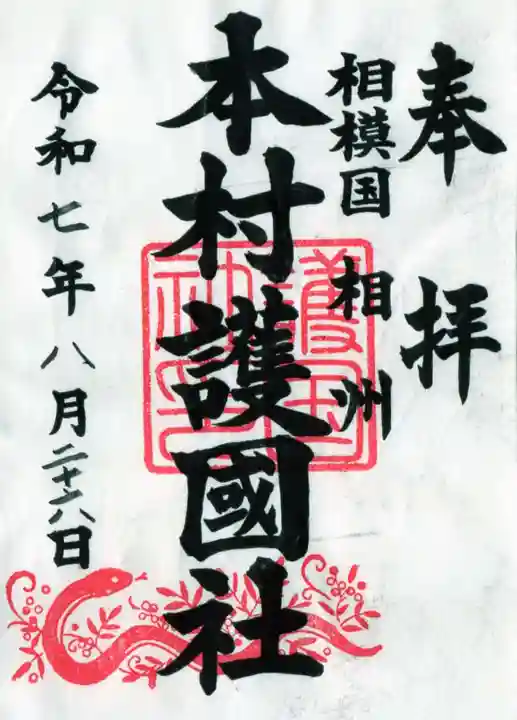 奉拝
相模国
相州
本村護國社
令和七年八月二十六日